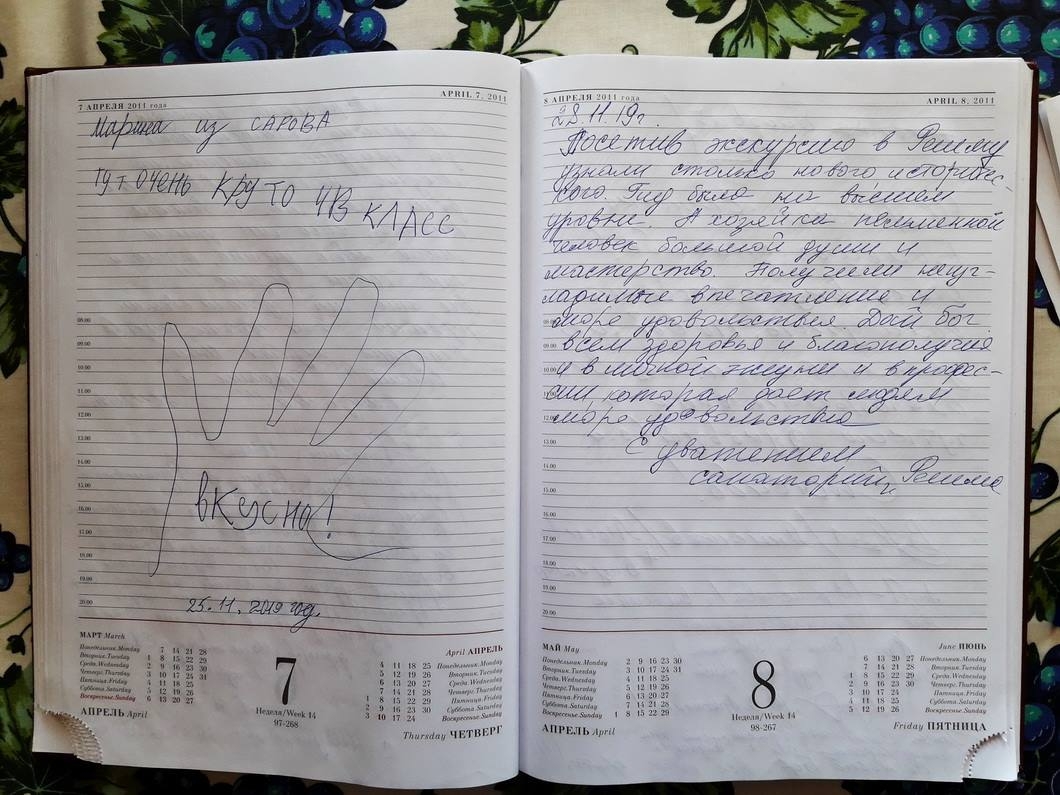 7 АПРЕЛЯ 2011 года
APRIL 7, 2011
Марина из САРОВА
тут ОЧЕНЬ КРУТО
КЛАСС
08.00
09.00
10.00
11.00
12.00
13.00
14.00
15.00
16.00
17.00
18.00
19.00
20.00
вкусно!
25.11.2019 год.
МАРТ March
Понедельник.Monday 7 14 21 28
Вторник.Tuesday 1 8 15 22 29
Среда.Wednesday 2 9 16 23 30
Четверг.Thursday 3 10 17 24 31
Пятница.Friday 4 11 18 25
Суббота.Saturday 5 12 19 26
Воскресенье.Sunday 6 13 20 27
АПРЕЛЬ April
7
Неделя/Week 14
97-268
April АПРЕЛЬ
4 11 18 25 Понедельник.Monday
5 12 19 26 Вторник.Tuesday
6 13 20 27 Среда.Wednesday
7 14 21 28 Четверг.Thursday
1 8 15 22 29 Пятница.Friday
2 9 16 23 30 Суббота.Saturday
3 10 17 24 Воскресенье.Sunday
Thursday ЧЕТВЕРГ
8 АПРЕЛЯ 2011 года
APRIL 8, 2011
28.11.19г.
Посетив экскурсию в Решму
узнали столько нового историчес-
кого. Гид была на высшем
уровне. А хозяйка пельменной
человек большой души и
мастерство. Получили неиз-
гладимые впечатление и
море удовольствия. Дай бог
всем здоровья и благополучия
и в личной жизни и в профес-
сии, которая дает людям
море удовольствие
С уважением
санаторий, Решма
09.00
10.00
11.00
12.00
13.00
14.00
15.00
16.00
17.00
18.00
19.00
20.00
МАЙ May
Понедельник.Monday 2 9 16 23 30
Вторник.Tuesday 3 10 17 24 31
Среда.Wednesday 4 11 18 25
Четверг.Thursday 5 12 19 26
Пятница.Friday 6 13 20 27
Суббота.Saturday 7 14 21 28
Воскресенье.Sunday 1 8 15 22 29
АПРЕЛЬ April
8
Неделя/Week 14
98-267
June ИЮНЬ
6 13 20 27 Понедельник.Monday
7 14 21 28 Вторник.Tuesday
1 8 15 22 29 Среда.Wednesday
2 9 16 23 30 Четверг.Thursday
3 10 17 24 Пятница.Friday
4 11 18 25 Суббота.Saturday
5 12 19 26 Воскресенье.Sunday
Friday ПЯТНИЦА